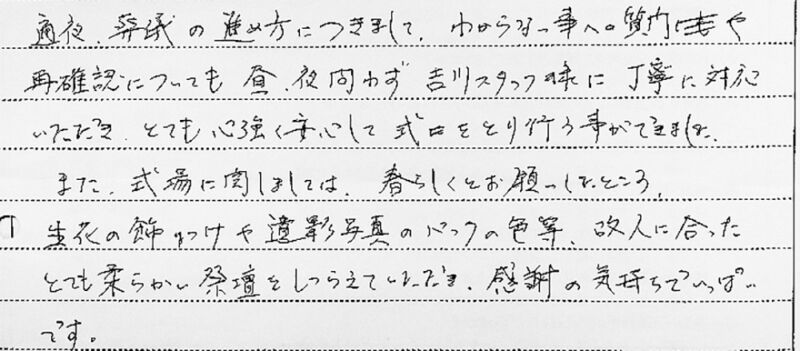 通夜、葬儀の進め方につきまして、わからない事への質問や
再確認についても昼、夜問わず吉川スタッフ様に丁寧に対応
いただき、とても心強く安心して式をとり行う事ができました。
また、式場に関しましては、春らしくとお願いしたところ、
生花の飾りつけや遺影写真のバックの色等、故人に合った
とても柔らかい祭壇をしつらえていただき、感謝の気持ちでいっぱい
です。